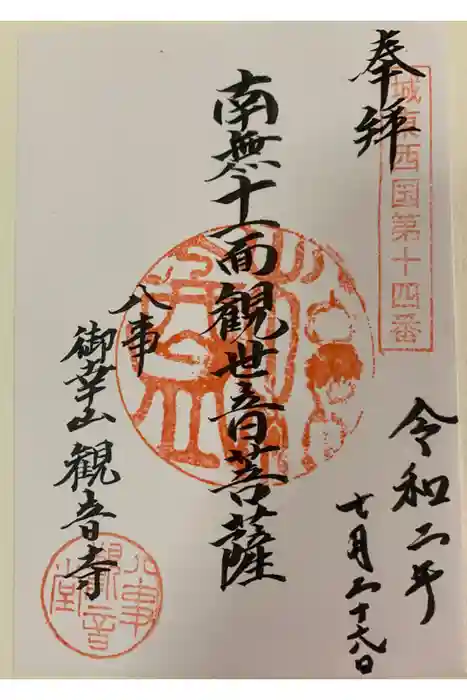 城東西国第十四番
奉拝
令和二年
七月二十六日
南無十一面観世音菩薩
八事
御幸山観音寺
八事
観音
堂